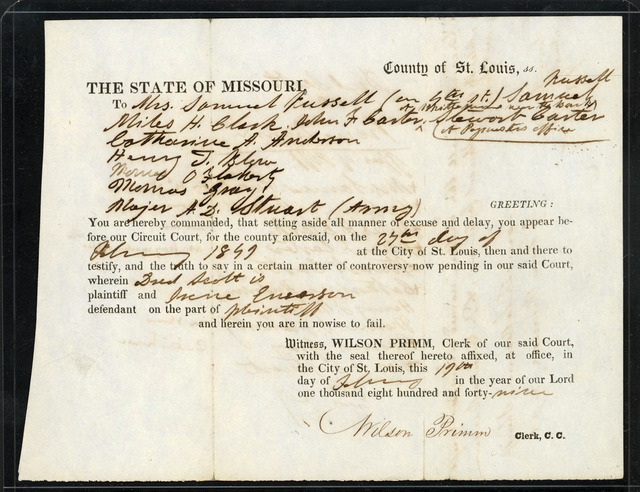 County of St. Louis, ss.
THE STATE OF MISSOURI,
To Mrs. Samuel Russell (on 6th st.) Samuel Russell
Miles H. Clark, John F. Carter, Stewart Carter
Catharine A. Anderson
Henry T. Blow
O'Flaherty
Thomas Gray
Major A. D. Stuart (Army) GREETING:
You are hereby commanded, that setting aside all manner of excuse and delay, you appear be-
fore our Circuit Court, for the county aforesaid, on the 27th day of
February 1849 at the City of St. Louis, then and there to
testify, and the truth to say in a certain matter of controversy now pending in our said Court,
wherein Dred Scott is
plaintiff and Irene Emerson
defendant on the part of plaintiff
and herein you are in nowise to fail.
Witness, WILSON PRIMM, Clerk of our said Court,
with the seal thereof hereto affixed, at office, in
the City of St. Louis, this 19th
day of February in the year of our Lord
one thousand eight hundred and forty-nine
Wilson Primm Clerk, C. C.